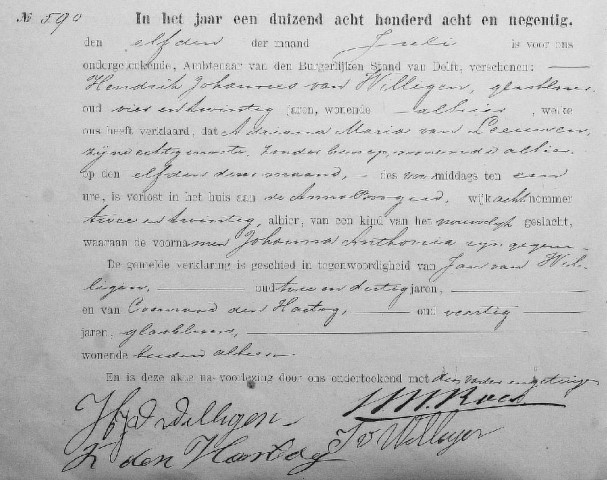 № 590 In het jaar een duizend acht honderd acht en negentig.
den elfden der maand Juli is voor ons
ondergeteekende, Ambtenaar van den Burgerlijken Stand van Delft, verschenen:
Hendrik Johannes van Willegen, glasblazer
oud vier en twintig jaren, wonende alhier, welke
ons heeft verklaard, dat Adriana Maria van Leeuwen,
zijne echtgenoote, zonder beroep, wonende alhier
op den elfden dezer maand, des voormiddags ten een
ure, is verlost in het huis aan de Annabogerd, wijk acht nommer
twee en twintig, alhier, van een kind van het vrouwelijk geslacht,
waaraan de voornamen Johanna Anthonia zijn gegeven
De gemelde verklaring is geschied in tegenwoordigheid van Jan van Wil-
legen, oud twee en dertig jaren,
en van Coenraad den Hartog, oud veertig
jaren, glasblazer,
wonende beiden alhier.
En is deze akte na voorlezing door ons onderteekend met den vader en getuigen
HJ v Willigen
C den Hartog J v Willegen